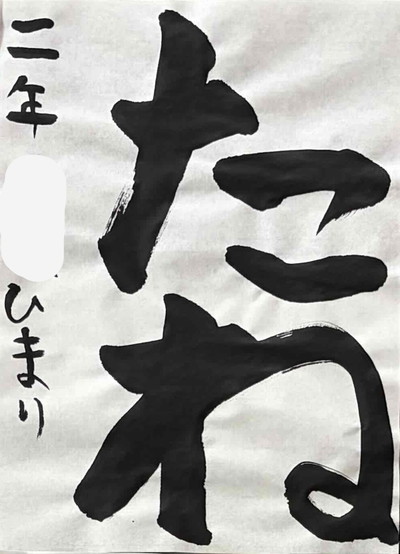 たね
二年
ひまり